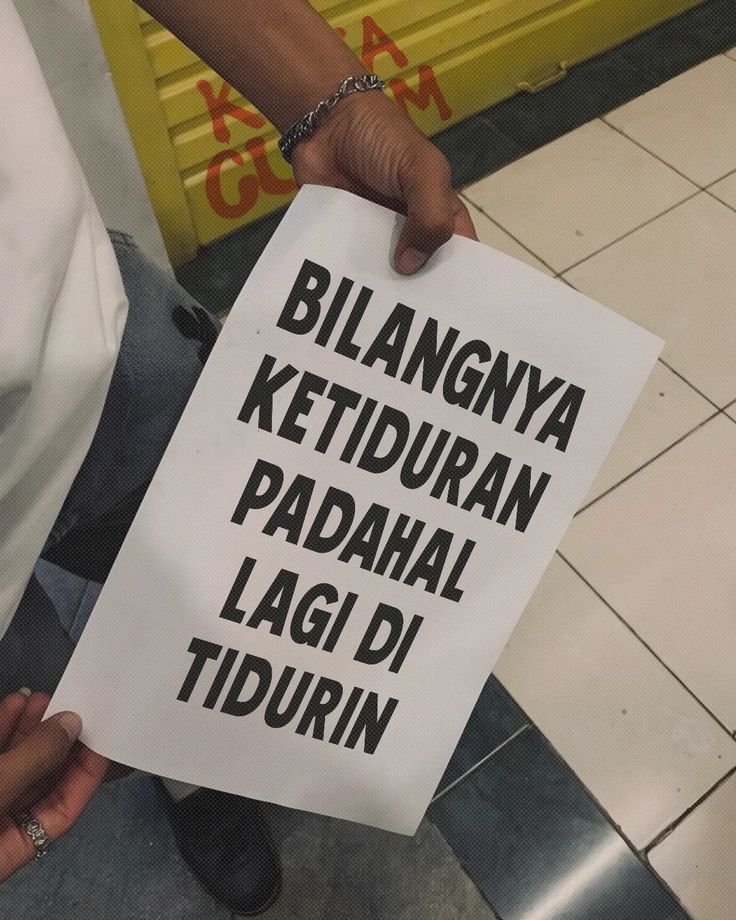 BILANGNYA
KETIDURAN
PADAHAL
LAGI DI
TIDURIN